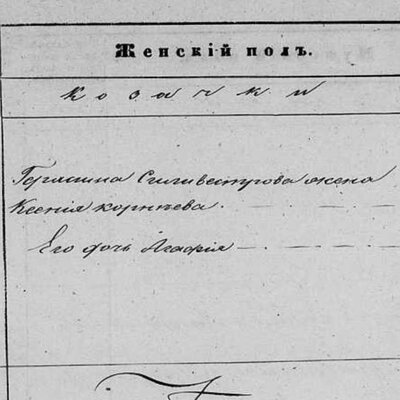 Женскій полъ.
козачки
Герасима Силивестрова жена
Ксенія корнѣева.
Его дочь Агафія